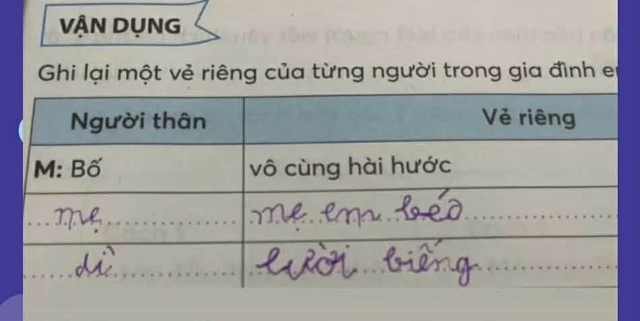 VẬN DỤNG
Ghi lại một vẻ riêng của từng người trong gia đình
Người thân Vẻ riêng
M: Bố vô cùng hài hước
mẹ mẹ em béo
dì lười biếng